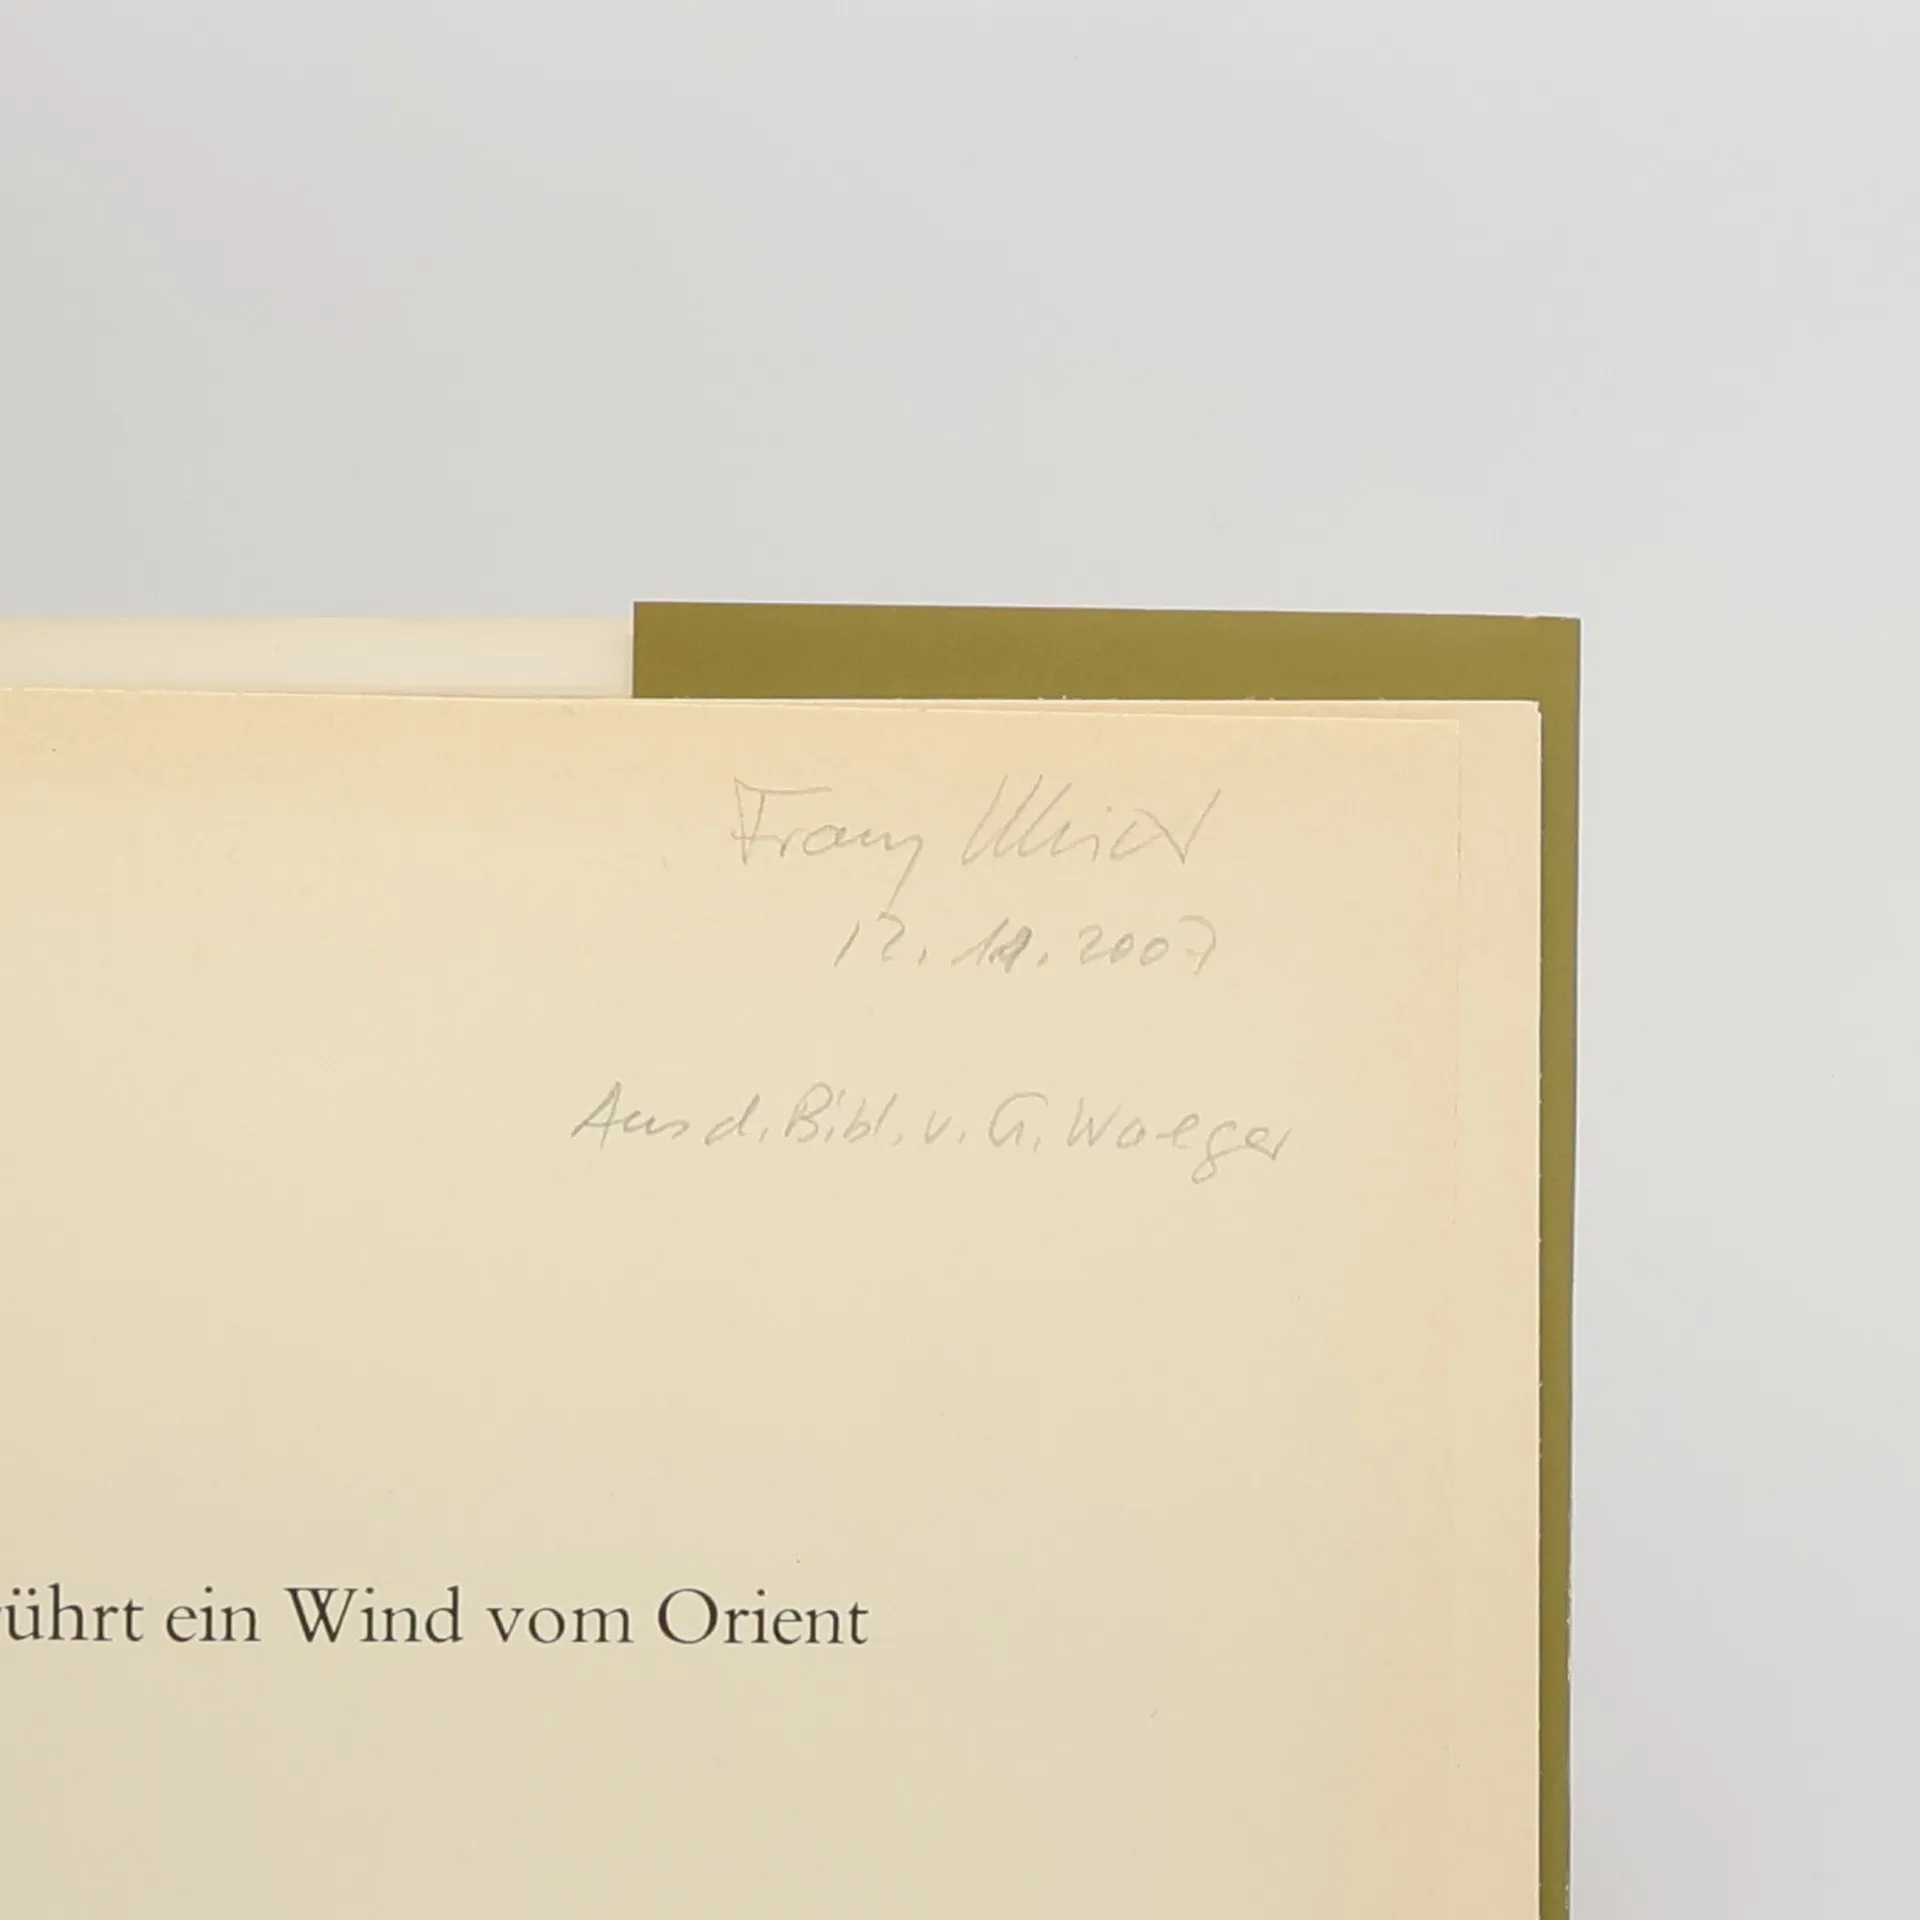 Franz
12. 11. 2007
Aus d. Bibl. v. G. Waeger
rührt ein Wind vom Orient